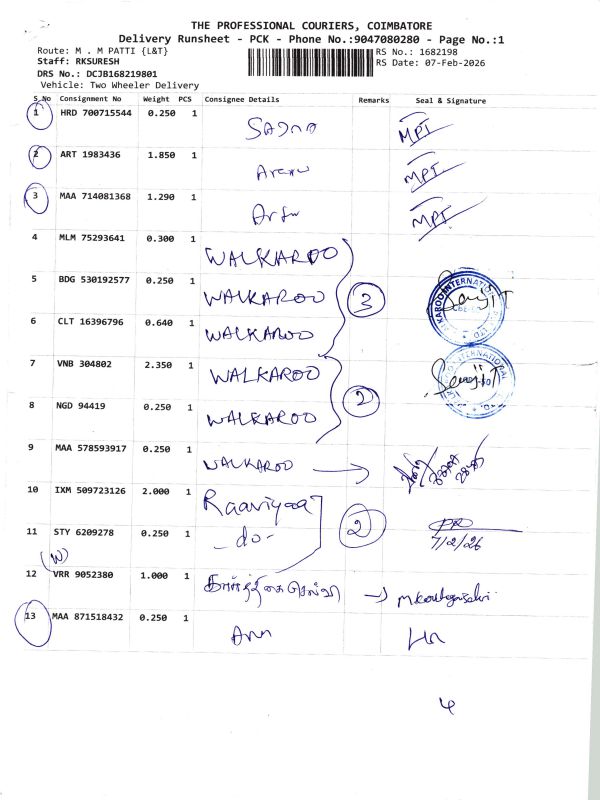 THE PROFESSIONAL COURIERS, COIMBATORE
Delivery Runsheet - PCK - Phone No.:9047080280 - Page No.:1
Route: M . M PATTI {L&T}
RS No.: 1682198
Staff: RKSURESH
RS Date: 07-Feb-2026
DRS No.: DCJB168219801
Vehicle: Two Wheeler Delivery
S.No Consignment No Weight PCS Consignee Details Remarks Seal & Signature
1 HRD 700715544 0.250 1 MPT
2 ART 1983436 1.850 1 MPT
3 MAA 714081368 1.290 1 MPT
4 MLM 75293641 0.300 1 WALKAROO
5 BDG 530192577 0.250 1 WALKAROO 3
6 CLT 16396796 0.640 1 WALKAROO
7 VNB 304802 2.350 1 WALKAROO
8 NGD 94419 0.250 1 WALKAROO 2
9 MAA 578593917 0.250 1 WALKAROO
10 IXM 509723126 2.000 1
11 STY 6209278 0.250 1 -do- 2 7/2/26
(W)
12 VRR 9052380 1.000 1
13 MAA 871518432 0.250 1
4